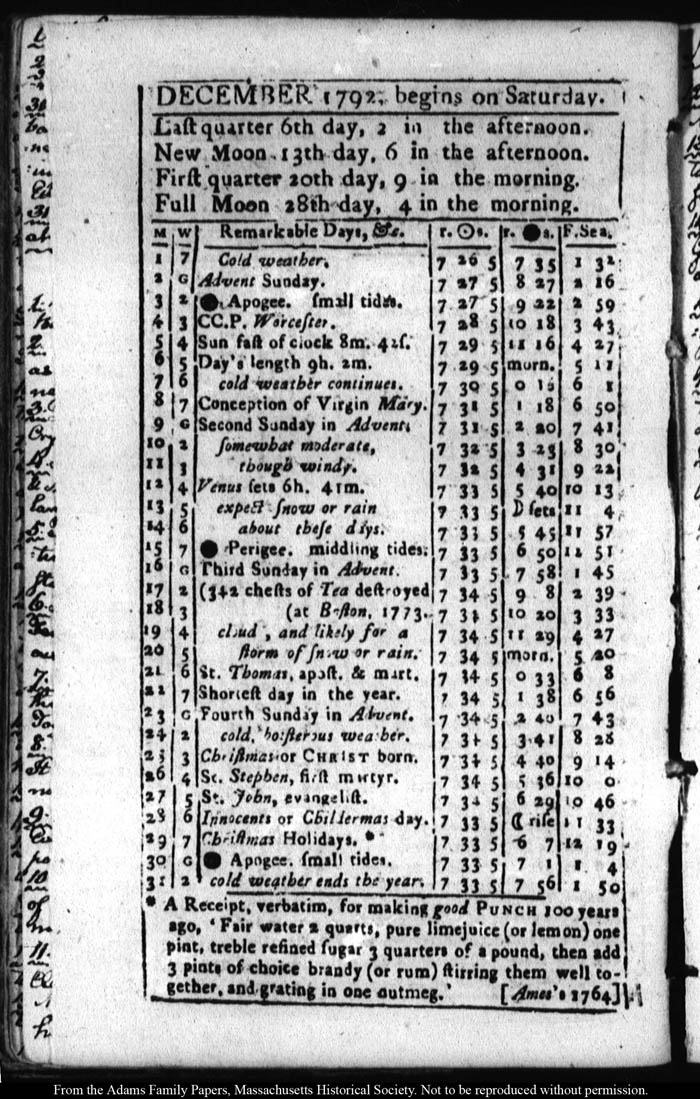 DECEMBER 1792, begins on Saturday.
Laſt quarter 6th day, 2 in the afternoon.
New Moon 13th day, 6 in the afternoon.
Firſt quarter 20th day, 9 in the morning.
Full Moon 28th day, 4 in the morning.
M W Remarkable Days, &c. r. ☉ s. r. ● s. F. Sea.
1 7 Cold weather. 7 26 5 7 35 1 32
2 G Advent Sunday. 7 27 5 8 27 2 16
3 2 ● Apogee. ſmall tides. 7 27 5 9 22 2 59
4 3 CC.P. Worceſter. 7 28 5 10 18 3 43
5 4 Sun faſt of clock 8m. 42ſ. 7 29 5 11 16 4 27
6 5 Day's length 9h. 2m. 7 29 5 morn. 5 11
7 6 cold weather continues. 7 30 5 0 6
8 7 Conception of Virgin Mary. 7 31 5 1 18 6 50
9 G Second Sunday in Advent. 7 31 5 2 20 7 41
10 2 ſomewhat moderate, 7 32 5 3 23 8 30
11 3 though windy. 7 32 5 4 31 9 22
12 4 Venus ſets 6h. 41m. 7 33 5 5 40 10 13
13 5 expect ſnow or rain 7 33 5 D ſets 11 4
14 6 about theſe days. 7 33 5 5 45 11 57
15 7 ● Perigee. middling tides. 7 33 5 6 50 12 51
16 G Third Sunday in Advent. 7 33 5 7 58 1 45
17 2 (342 cheſts of Tea deſtroyed 7 34 5 9 8 2 39
18 3 (at Boſton, 1773. 7 34 5 10 20 3 33
19 4 cloud , and likely for a 7 34 5 11 29 4 27
20 5 ſtorm of ſnow or rain. 7 34 5 morn. 5 20
21 6 St. Thomas, apoſt. & mart. 7 34 5 0 33 6 8
22 7 Shorteſt day in the year. 7 34 5 1 38 6 56
23 G Fourth Sunday in Advent. 7 34 5 2 40 7 43
24 2 cold, boiſterous weather. 7 34 5 3 41 8 28
25 3 Chriſtmas or CHRIST born. 7 34 5 4 40 9 14
26 4 St. Stephen, firſt martyr. 7 34 5 5 36 10 0
27 5 St. John, evangeliſt. 7 34 5 6 29 10 46
28 6 Innocents or Childermas day. 7 33 5 ☾ riſe 11 33
29 7 Chriſtmas Holidays. * 7 33 5 6 7 12 19
30 G ● Apogee. ſmall tides. 7 33 5 7 1 1 4
31 2 cold weather ends the year. 7 33 5 7 56 1 50
* A Receipt, verbatim, for making good PUNCH 100 years
ago, ‘Fair water 2 quarts, pure limejuice (or lemon) one
pint, treble refined ſugar 3 quarters of a pound, then add
3 pints of choice brandy (or rum) ſtirring them well to-
gether, and grating in one nutmeg.’ [Ames's 1764]
From the Adams Family Papers, Massachusetts Historical Society. Not to be reproduced without permission.